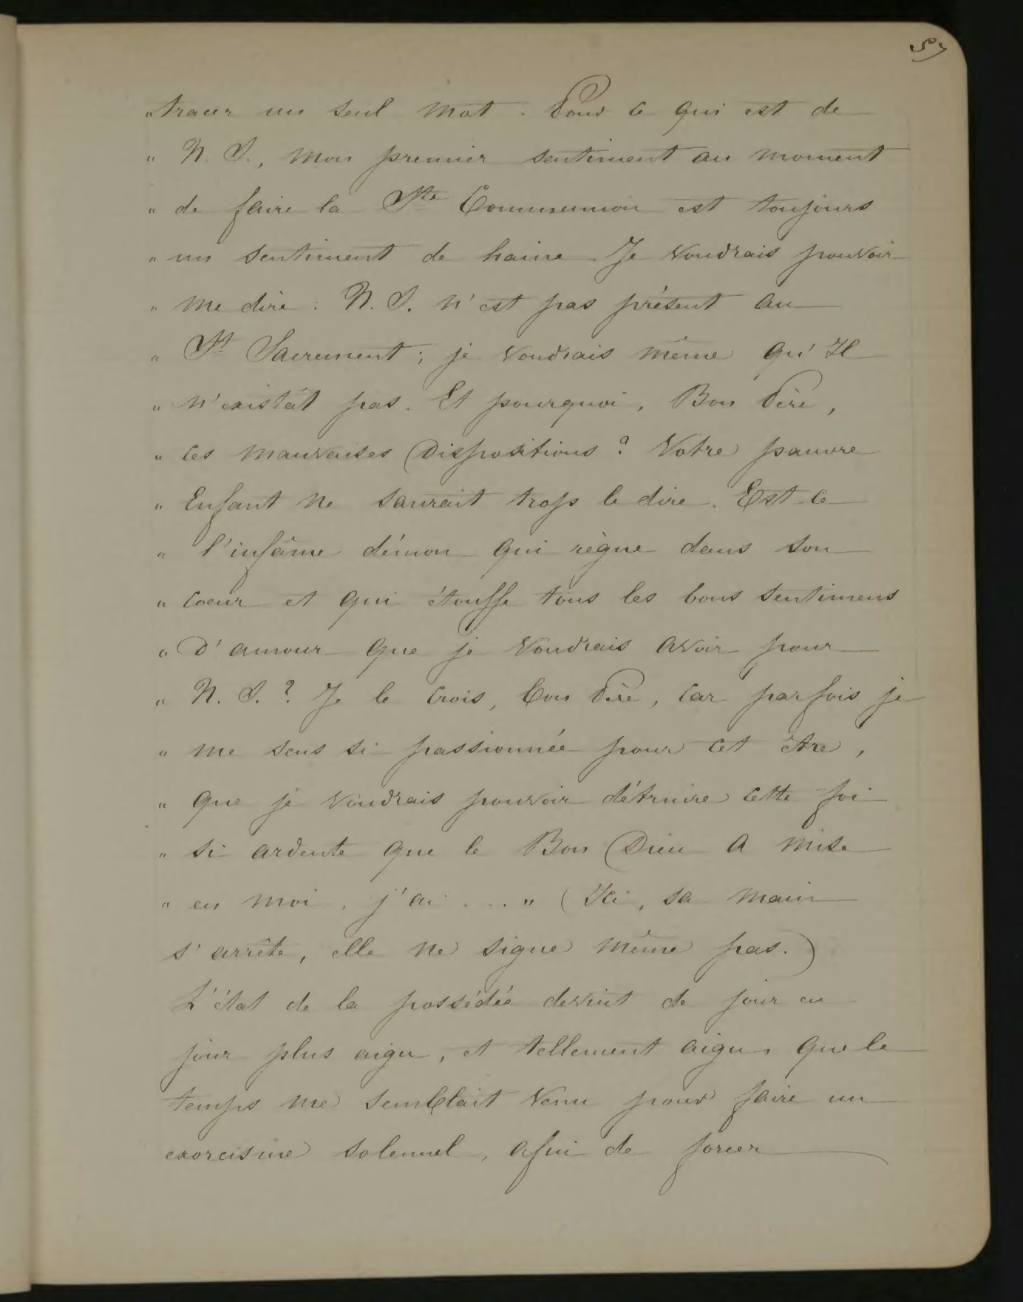 57
„ tracer un seul mot. Pour ce qui est de
„ N. S., mon premier sentiment au moment
„ de faire la Ste Communion est toujours
„ un sentiment de haine. Je voudrais pouvoir
„ me dire : N. S. n'est pas présent au
„ St Sacrement ; je voudrais même qu'Il
„ n'existât pas. Et pourquoi, Bon Père,
„ ces mauvaises Dispositions ? Votre pauvre
„ Enfant ne saurait trop le dire. Est-ce
„ l'infâme démon qui règne dans son
„ coeur et qui étouffe tous les bons sentimens
„ D'amour que je voudrais avoir pour
„ N. S. ? Je le crois, bon Père, car parfois je
„ me sens si passionnée pour cet être,
„ que je voudrais pouvoir détruire cette foi
„ si ardente que le Bon Dieu a mise
„ en moi, j'ai .... „ (Ici, sa main
s'arrête, elle ne signe même pas.)
L'état de la possédée devint de jour en
jour plus aigu, et tellement aigu, que le
temps me semblait venu pour faire un
exorcisme solennel, afin de forcer